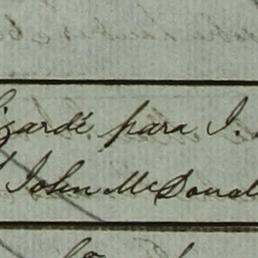 izardé para I.
John McDonal